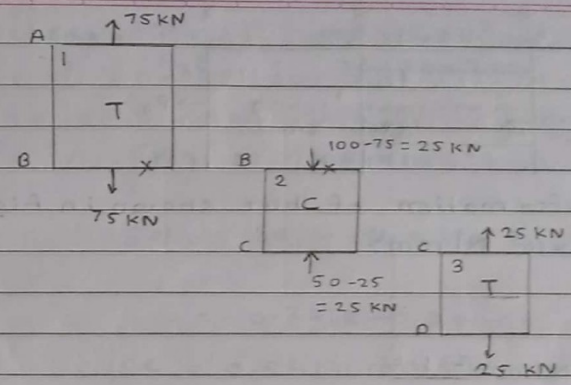 75 KN
A
1
T
B
X
75 KN
B
100-75 = 25 KN
X
2
C
C
50-25
= 25 KN
C
25 KN
3
T
D
25 KN